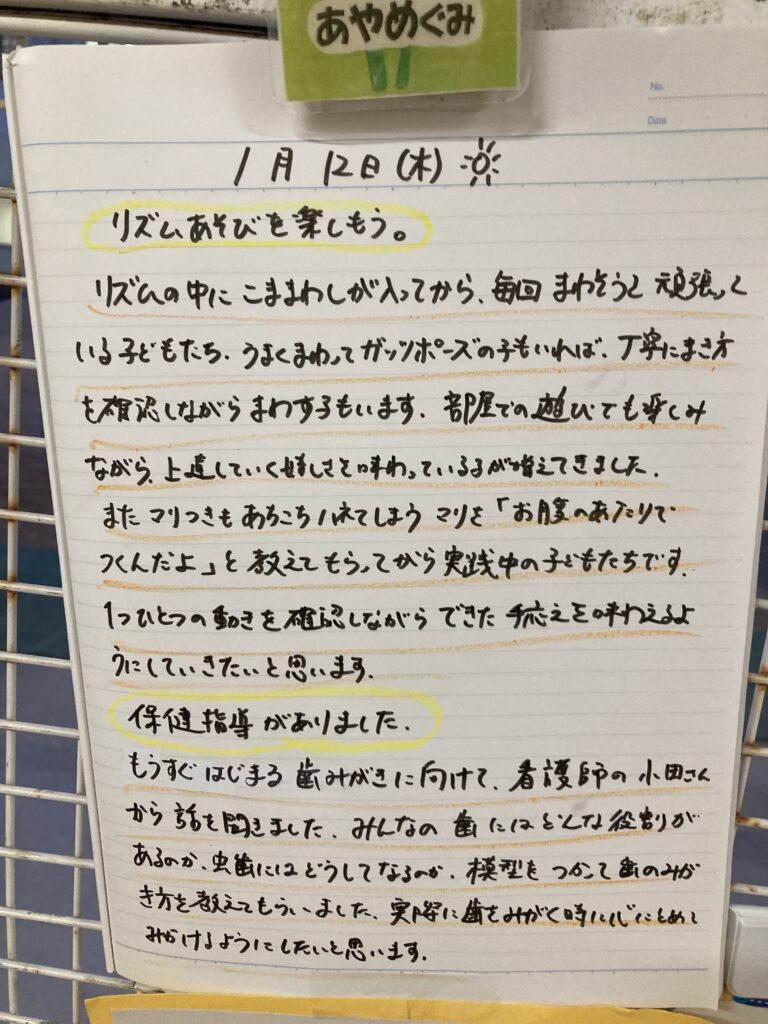 あやめぐみ
No.
Date
1月12日(木)
リズムあそびを楽しもう。
リズムの中に こままわしが入ってから、毎回 まわそうと 頑張って
いる子どもたち。うまくまわって ガッツポーズの子もいれば、丁寧にまき方
を確認しながら まわす子もいます。部屋での遊びでも楽しみ
ながら、上達していく嬉しさを味わっている子が増えてきました。
また マリつきも あちこち ハネてしまう マリを「お腹のあたりで
つくんだよ」と 教えてもらってから 実践中の子どもたちです。
1つひとつの動きを確認しながら できた 手応えを味わえるよ
うにしていきたいと思います。
保健指導がありました。
もうすぐ はじまる 歯みがきに向けて、看護師の 小田さん
から 話を聞きました。みんなの 歯にはどんな役割が
あるのか、虫歯にはどうしてなるのか、模型も つかって 歯のみが
き方を教えてもらいました。実際に歯をみがく時に心にとめて
みがけるようにしたいと思います。